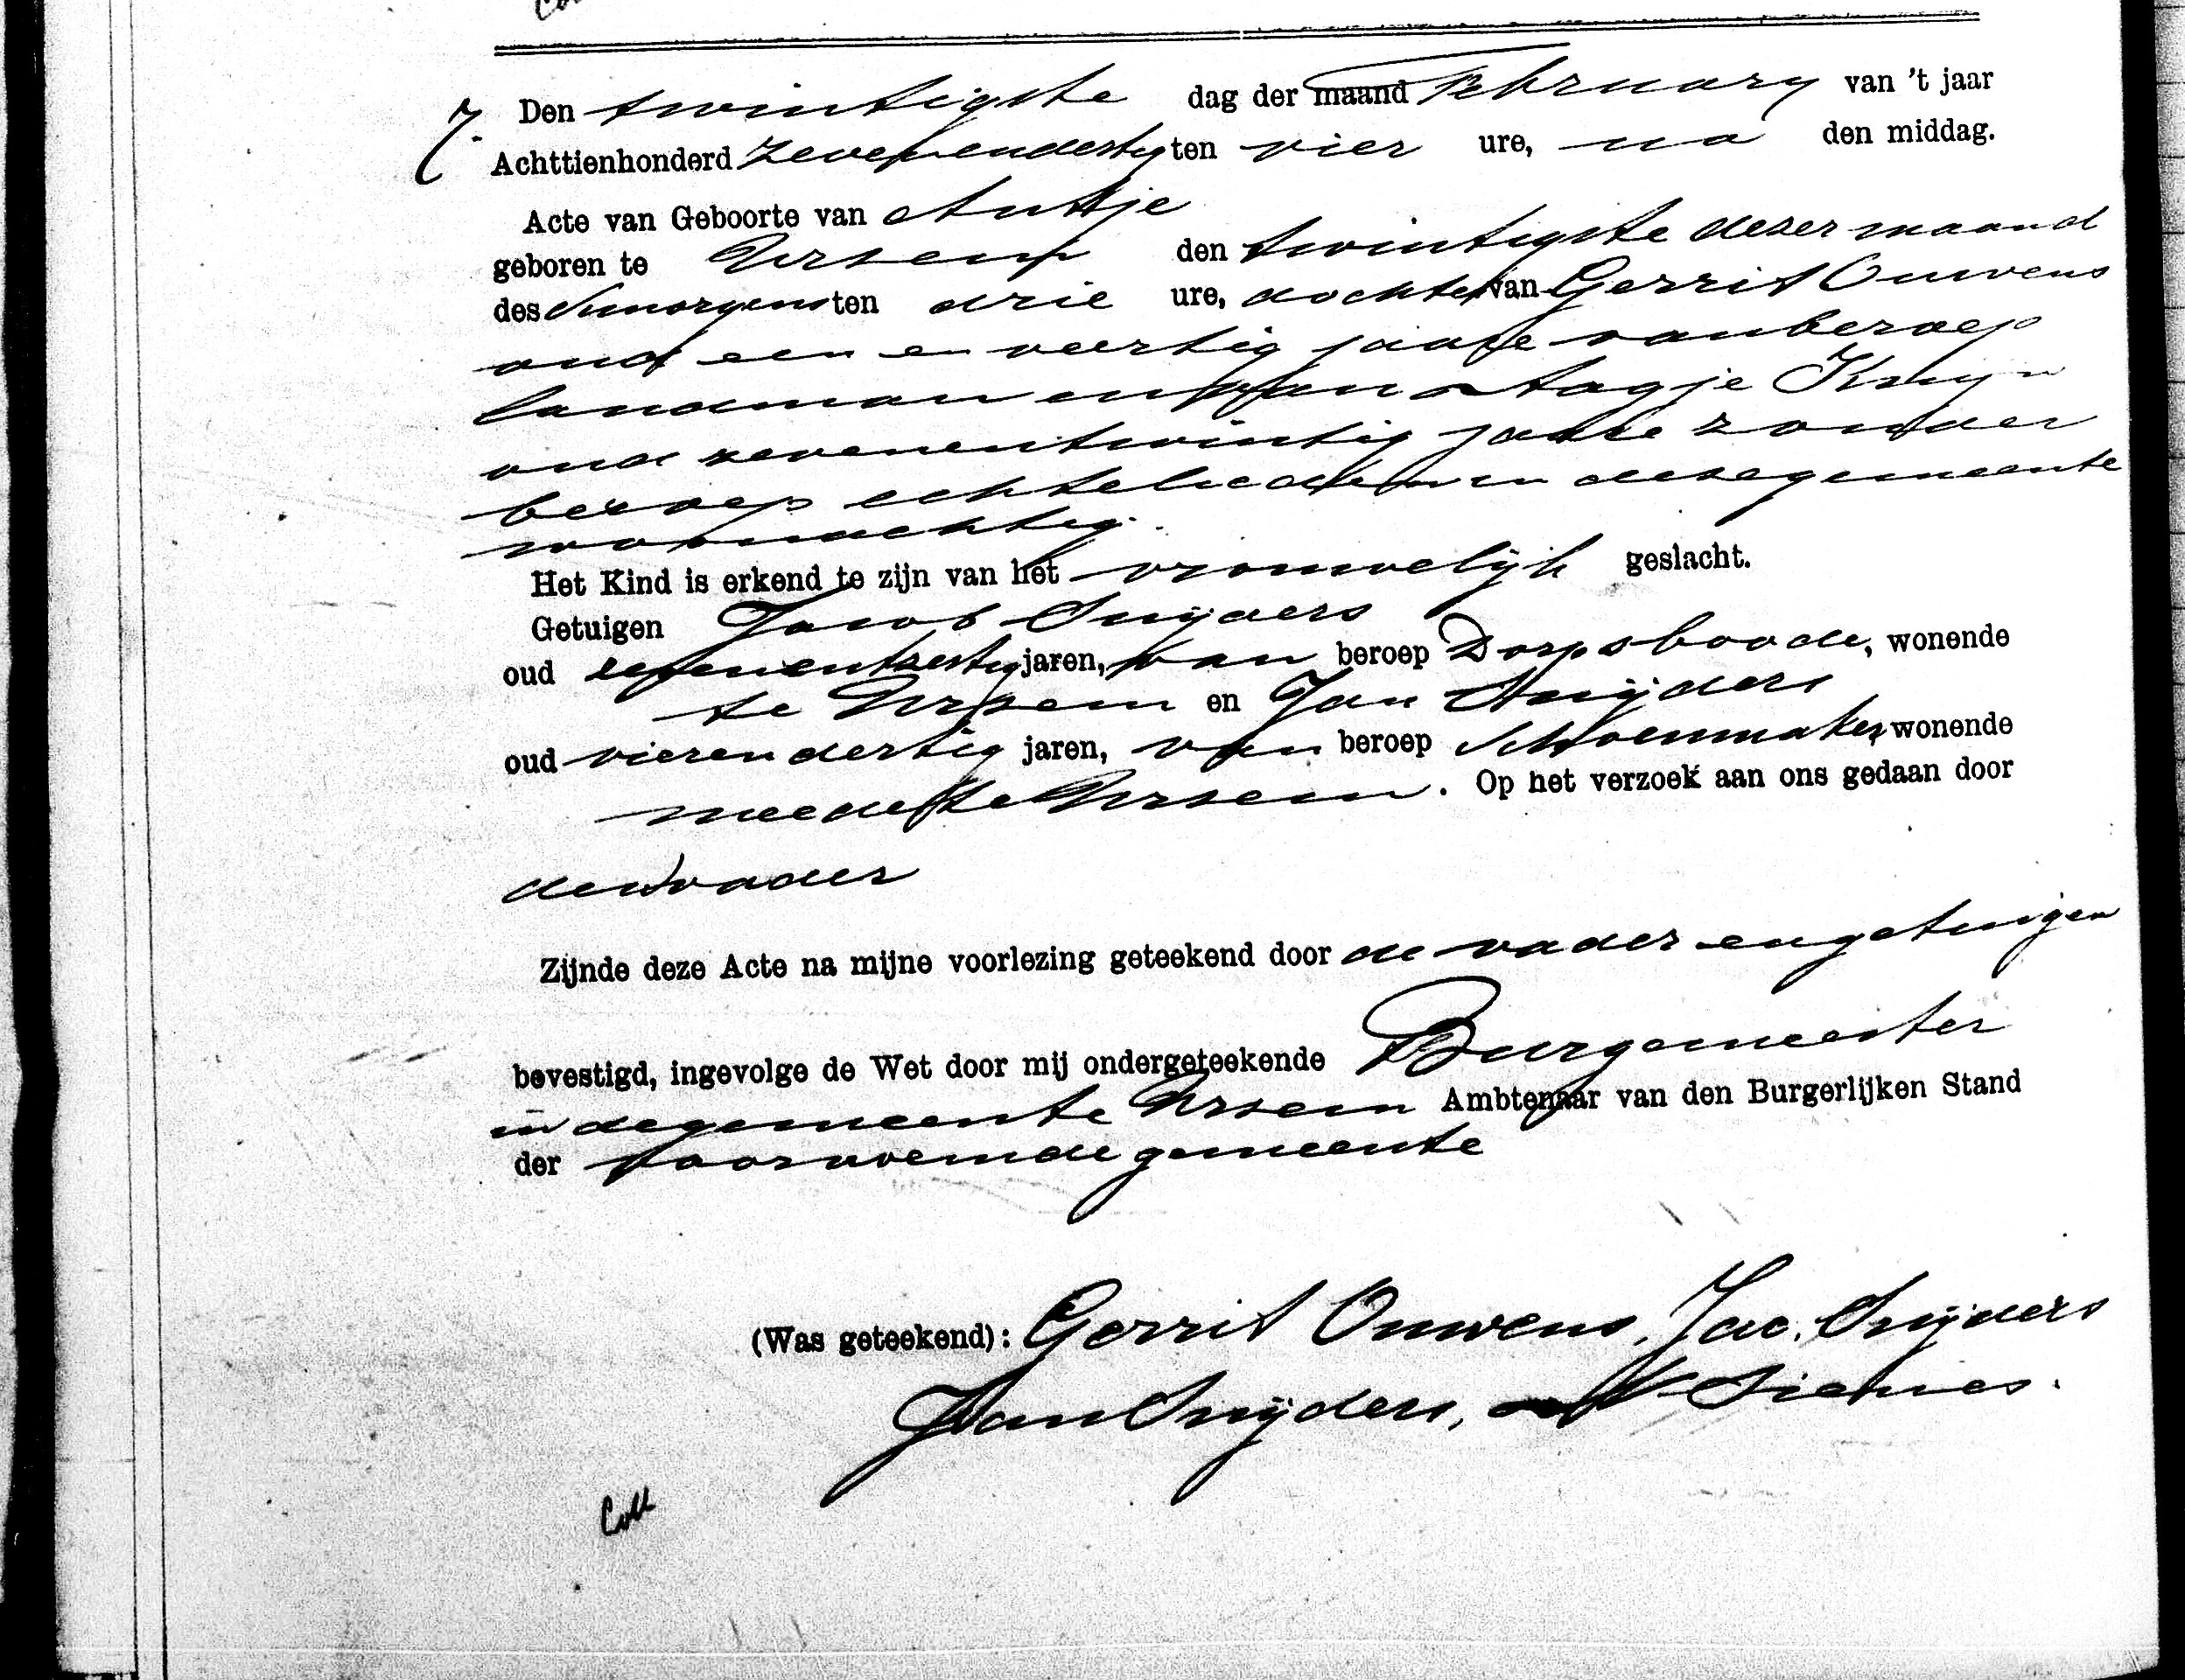 7. Den twintigste dag der maand February van 't jaar
Achttienhonderd zevenendertig ten vier ure, na den middag.
Acte van Geboorte van Antje
geboren te Ursem den twintigste dezer maand
des smorgens ten drie ure, dochter van Gerrit Ouwens
oud een en veertig jaare van beroep
landman en van Aagje Kruyn
oud zevenentwintig jaare zonder
beroep echtelieden in deze gemeente
woonachtig.
Het Kind is erkend te zijn van het vrouwelijk geslacht.
Getuigen Jacob Snijders
oud zevenentzestig jaren, van beroep Dorpsboode, wonende
te Ursem en Jan Snijders
oud vierendertig jaren, van beroep Schoenmaker, wonende
meede te Ursem. Op het verzoek aan ons gedaan door
den vader
Zijnde deze Acte na mijne voorlezing geteekend door de vader en getuigen
bevestigd, ingevolge de Wet door mij ondergeteekende Burgemeester
in de gemeente Ursem Ambtenaar van den Burgerlijken Stand
der voornoemde gemeente
(Was geteekend): Gerrit Ouwens, Jac. Snijders
Jan Snijders,
Coll